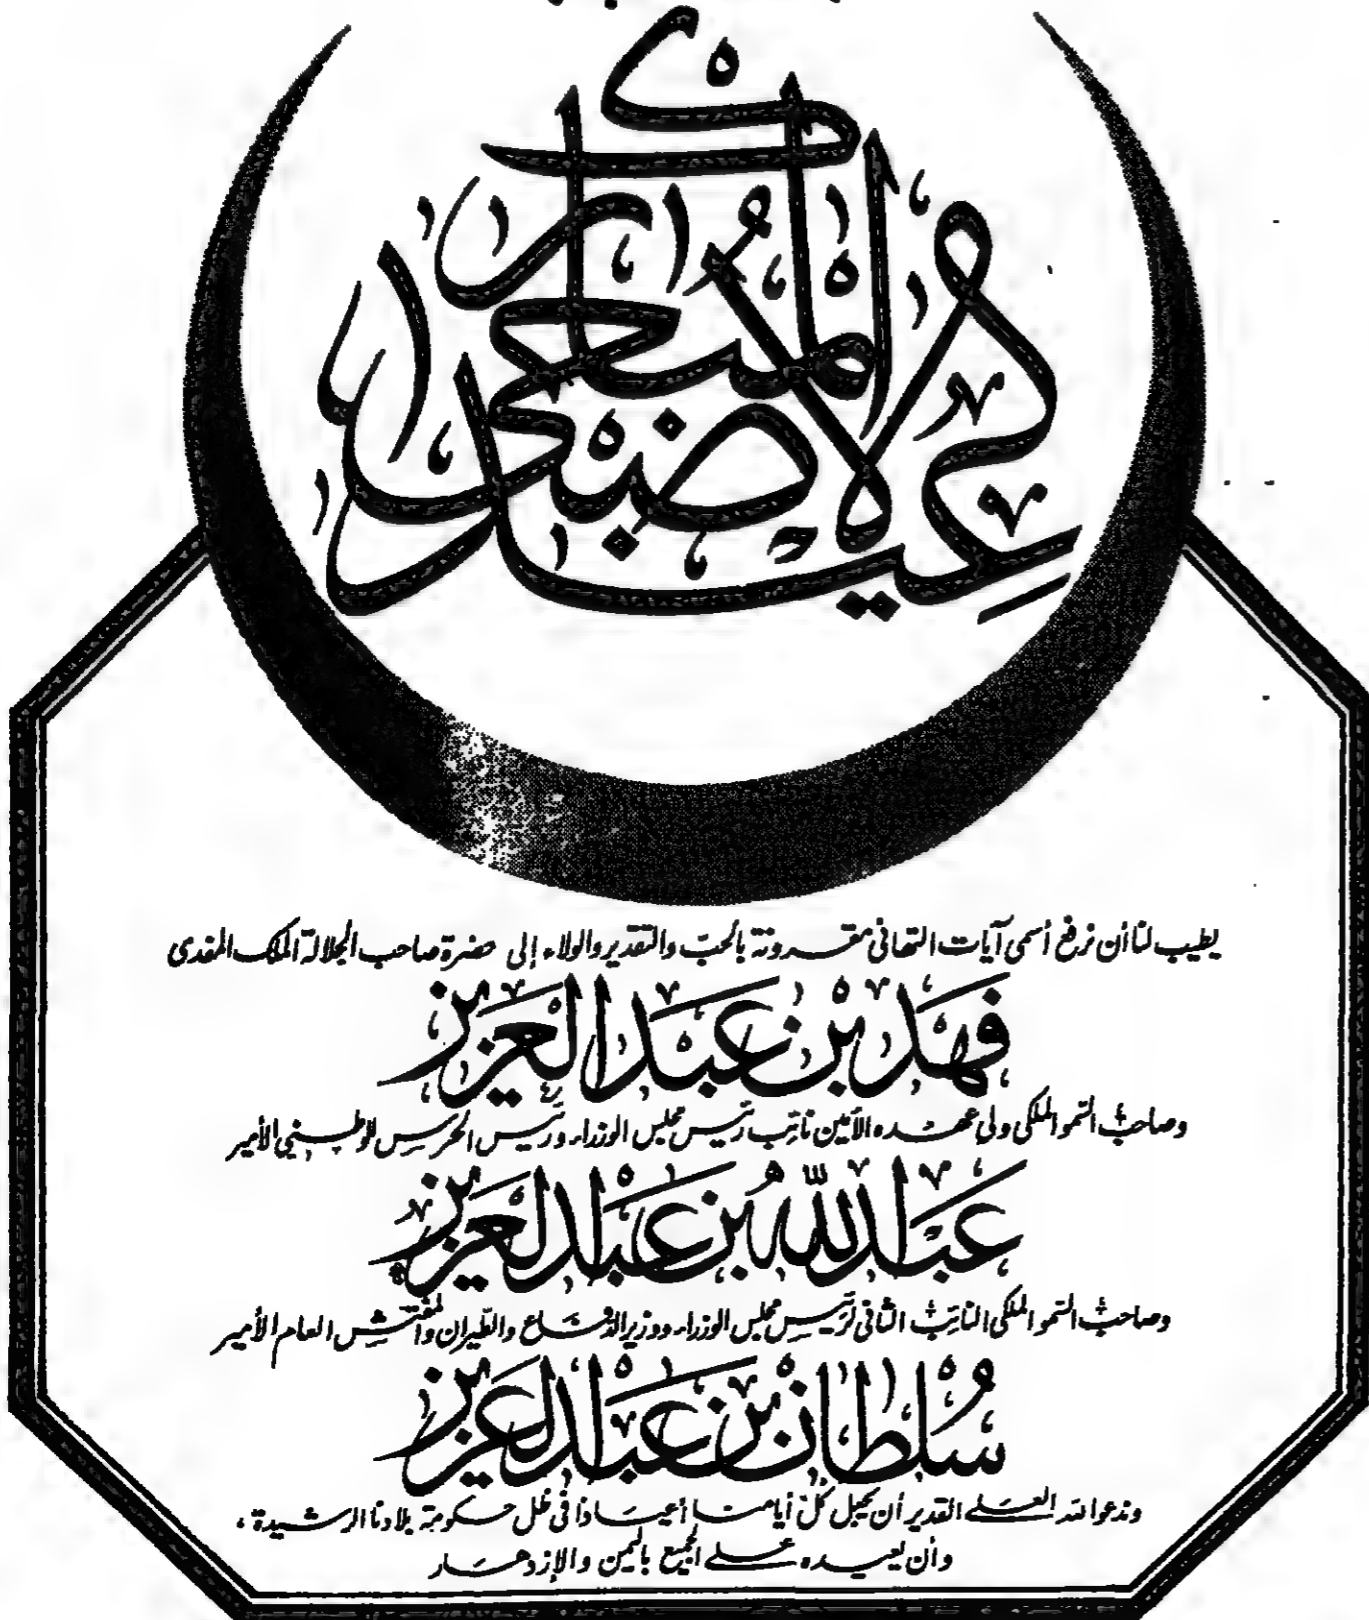 عيد الأضحى المبارك
يطيب لنا أن نرفع أسمى آيات التهاني مقرونة بالحب والتقدير والولاء إلى حضرة صاحب الجلالة الملك المفدى
فهد بن عبد العزيز
وصاحب السمو الملكي ولي عهده الأمين نائب رئيس مجلس الوزراء ورئيس الحرس الوطني الأمير
عبد الله بن عبد العزيز
وصاحب السمو الملكي النائب الثاني لرئيس مجلس الوزراء ووزير الدفاع والطيران والمفتش العام الأمير
سلطان بن عبد العزيز
وندعو الله العلي القدير أن يجعل كل أيامنا أعيادا في ظل حكومة بلادنا الرشيدة،
وأن يعيده على الجميع باليمن والازدهار